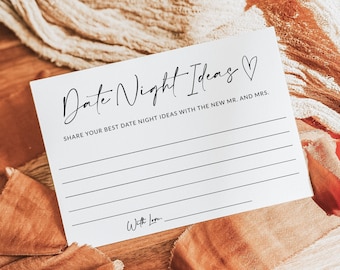 Date Night Ideas
SHARE YOUR BEST DATE NIGHT IDEAS WITH THE NEW MR. AND MRS.
With Love,